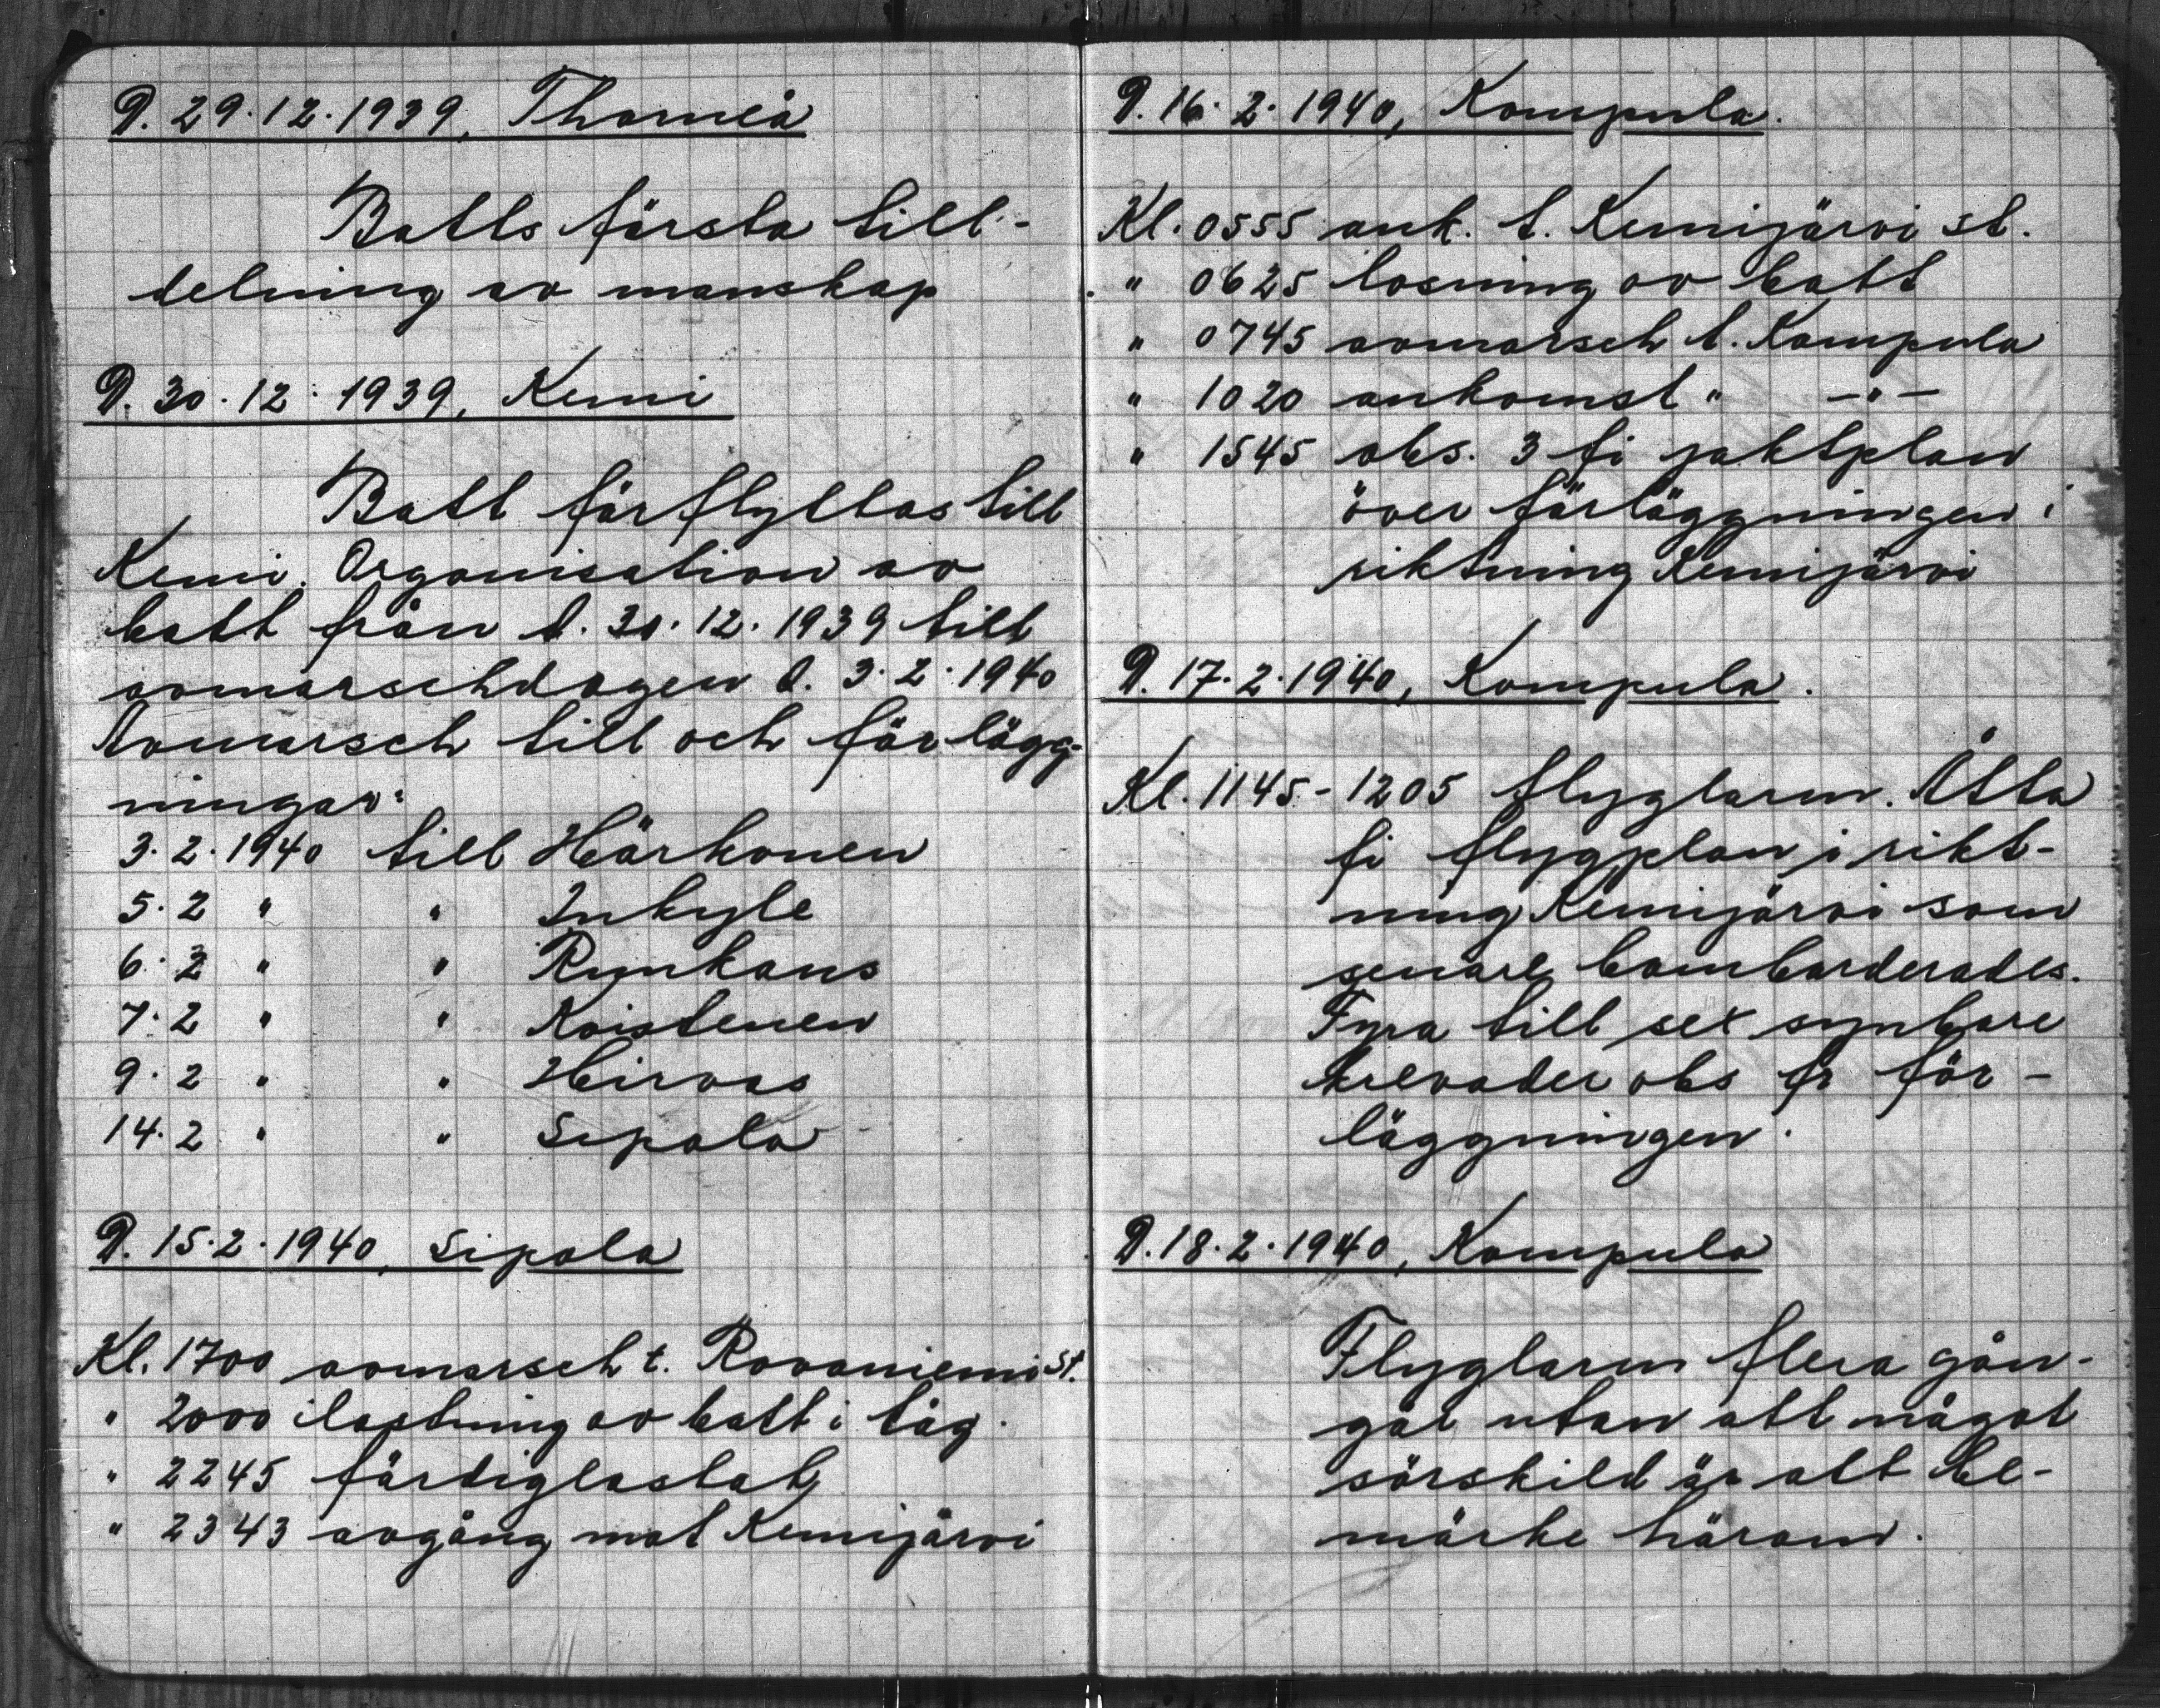 D. 29.12.1939, Thorneå
Batts första till-
delning av manskap
D. 30.12.1939, Kemi
Batt förflyttas till
Kemi. Organisation av
batt från d. 30.12.1939 till
avmarschdagen d. 3.2.1940
Avmarsch till och förlägg-
ningar:
3.2.1940 till Härkonen
5.2 " " Inkyle
6.2 " " Rynkaus
7.2 " " Koistenen
9.2 " " Hirvas
14.2 " " Sipola
D. 15.2.1940, Sipola
Kl. 1700 avmarsch t. Rovaniemi St.
" 2000 ilastning av batt i tåg.
" 2245 färdiglastat
" 2343 avgång mot Kemijärvi
D. 16.2.1940, Kompula.
Kl. 0555 ank. t. Kemijärvi st.
" 0625 losning av batt
" 0745 avmarsch t. Kompula
" 1020 ankomst " -"-
" 1545 obs. 3 fi jaktplan
över förläggningen i
riktning Kemijärvi
D. 17.2.1940, Kompula.
Kl. 1145-1205 flyglarm. Åtta
fi flygplan i rikt-
ning Kemijärvi som
senare bombarderades.
Fyra till sex synbare
krevader obs fr för-
läggningen.
D. 18.2.1940, Kompula
Flyglarm flera gån-
gar utan att något
särskild är att be-
märke härom.